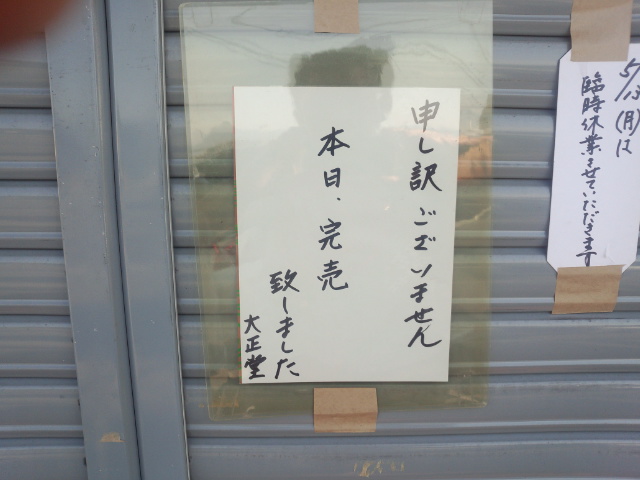 5/13(月)は
臨時休業させていただきます
申し訳ございません
本日、完売
致しました
大正堂